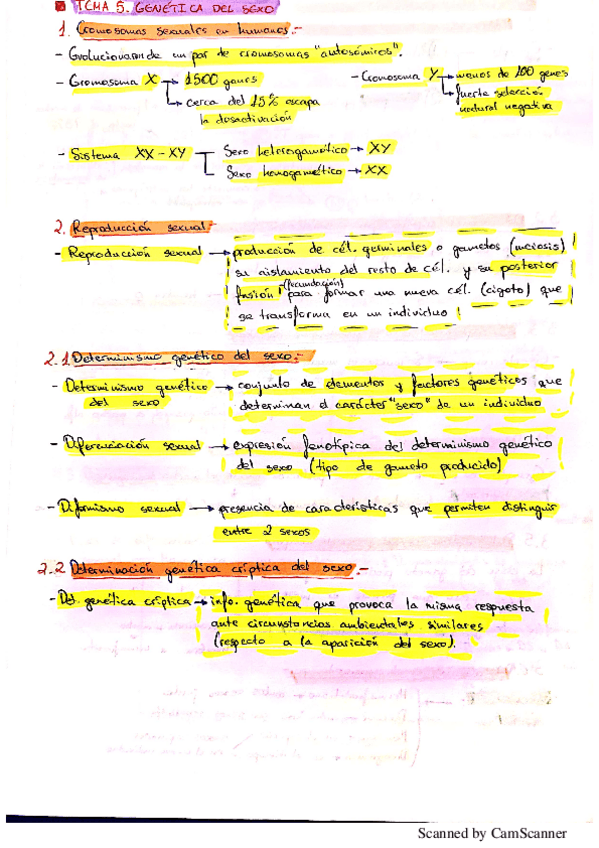 TEMA 5. GENÉTICA DEL SEXO
1. Cromosomas sexuales en humanos:-
- Evolucionaron de un par de cromosomas "autosómicos".
- Cromosoma X → 1500 genes
↳ cerca del 15% escapa la desactivación
- Cromosoma Y → menos de 100 genes
↳ fuerte selección natural negativa
- Sistema XX-XY
Sexo heterogamético → XY
Sexo homogamético → XX
2. Reproducción sexual-
- Reproducción sexual → producción de cél. germinales o gametos (meiosis)
su aislamiento del resto de cél. y su posterior
fusión (fecundación) para formar una nueva cél. (cigoto) que
se transforma en un individuo
2.1 Determinismo genético del sexo:-
- Determinismo genético del sexo → conjunto de elementos y factores genéticos que
determinan el carácter "sexo" de un individuo
- Diferenciación sexual → expresión fenotípica del determinismo genético
del sexo (tipo de gameto producido)
- Dimorfismo sexual → presencia de características que permiten distinguir
entre 2 sexos
2.2 Determinación genética críptica del sexo.-
- Det. genética críptica → info. genética que provoca la misma respuesta
ante circunstancias ambientales similares
(respecto a la aparición del sexo).
Scanned by CamScanner